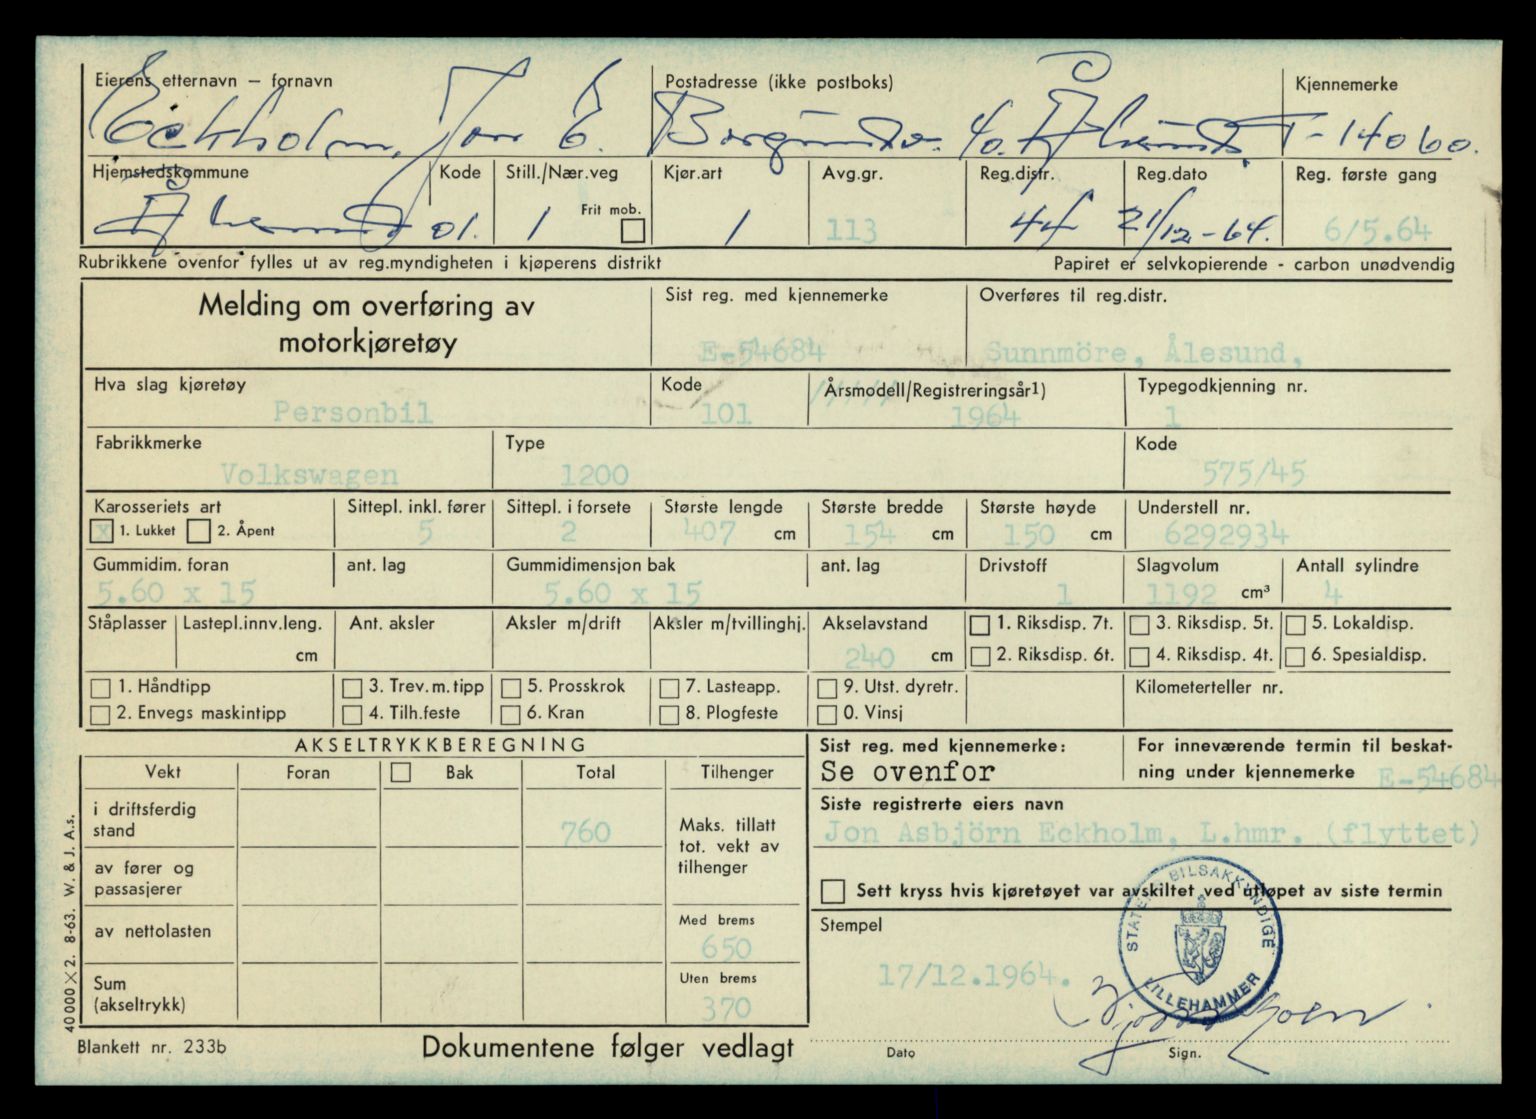 Eierens etternavn – fornavn Postadresse (ikke postboks) Kjennemerke
Eckholm, Jon E. Borgundv. 40. Ålesund. T-14060.
Hjemstedskommune Kode Still./Nær.veg Kjør.art Avg.gr. Reg.distr. Reg.dato Reg. første gang
Frit mob.
Ålesund 01. 1 1 113 44 21/12-64. 6/5.64
Rubrikkene ovenfor fylles ut av reg.myndigheten i kjøperens distrikt Papiret er selvkopierende - carbon unødvendig
Melding om overføring av Sist reg. med kjennemerke Overføres til reg.distr.
motorkjøretøy E-54684 Sunnmöre, Ålesund,
Hva slag kjøretøy Kode Årsmodell/Registreringsår1) Typegodkjenning nr.
Personbil 101 1964 1
Fabrikkmerke Type Kode
Volkswagen 1200 575/45
Karosseriets art Sittepl. inkl. fører Sittepl. i forsete Største lengde Største bredde Største høyde Understell nr.
x 1. Lukket 2. Åpent 5 2 407 cm 154 cm 150 cm 6292934
Gummidim. foran ant. lag Gummidimensjon bak ant. lag Drivstoff Slagvolum Antall sylindre
5.60 x 15 5.60 x 15 1 1192 cm³ 4
Ståplasser Lastepl.innv.leng. Ant. aksler Aksler m/drift Aksler m/tvillinghj. Akselavstand 1. Riksdisp. 7t. 3. Riksdisp. 5t. 5. Lokaldisp.
cm 240 cm 2. Riksdisp. 6t. 4. Riksdisp. 4t. 6. Spesialdisp.
1. Håndtipp 3. Trev.m.tipp 5. Prosskrok 7. Lasteapp. 9. Utst. dyretr. Kilometerteller nr.
2. Envegs maskintipp 4. Tilh.feste 6. Kran 8. Plogfeste 0. Vinsj
AKSELTRYKKBEREGNING Sist reg. med kjennemerke: For inneværende termin til beskat-
Vekt Foran Bak Total Tilhenger Se ovenfor ning under kjennemerke E-54684
i driftsferdig Siste registrerte eiers navn
stand 760 Maks. tillatt Jon Asbjörn Eckholm, L.hmr. (flyttet)
tot. vekt av
av fører og tilhenger
passasjerer Sett kryss hvis kjøretøyet var avskiltet ved utløpet av siste termin
av nettolasten Med brems Stempel
650
Sum Uten brems 17/12.1964.
(akseltrykk) 370
STATENS BILSAKKYNDIGE
LILLEHAMMER
40 000 X 2. 8-63. W. & J. A.s.
Blankett nr. 233b Dokumentene følger vedlagt Dato Sign.